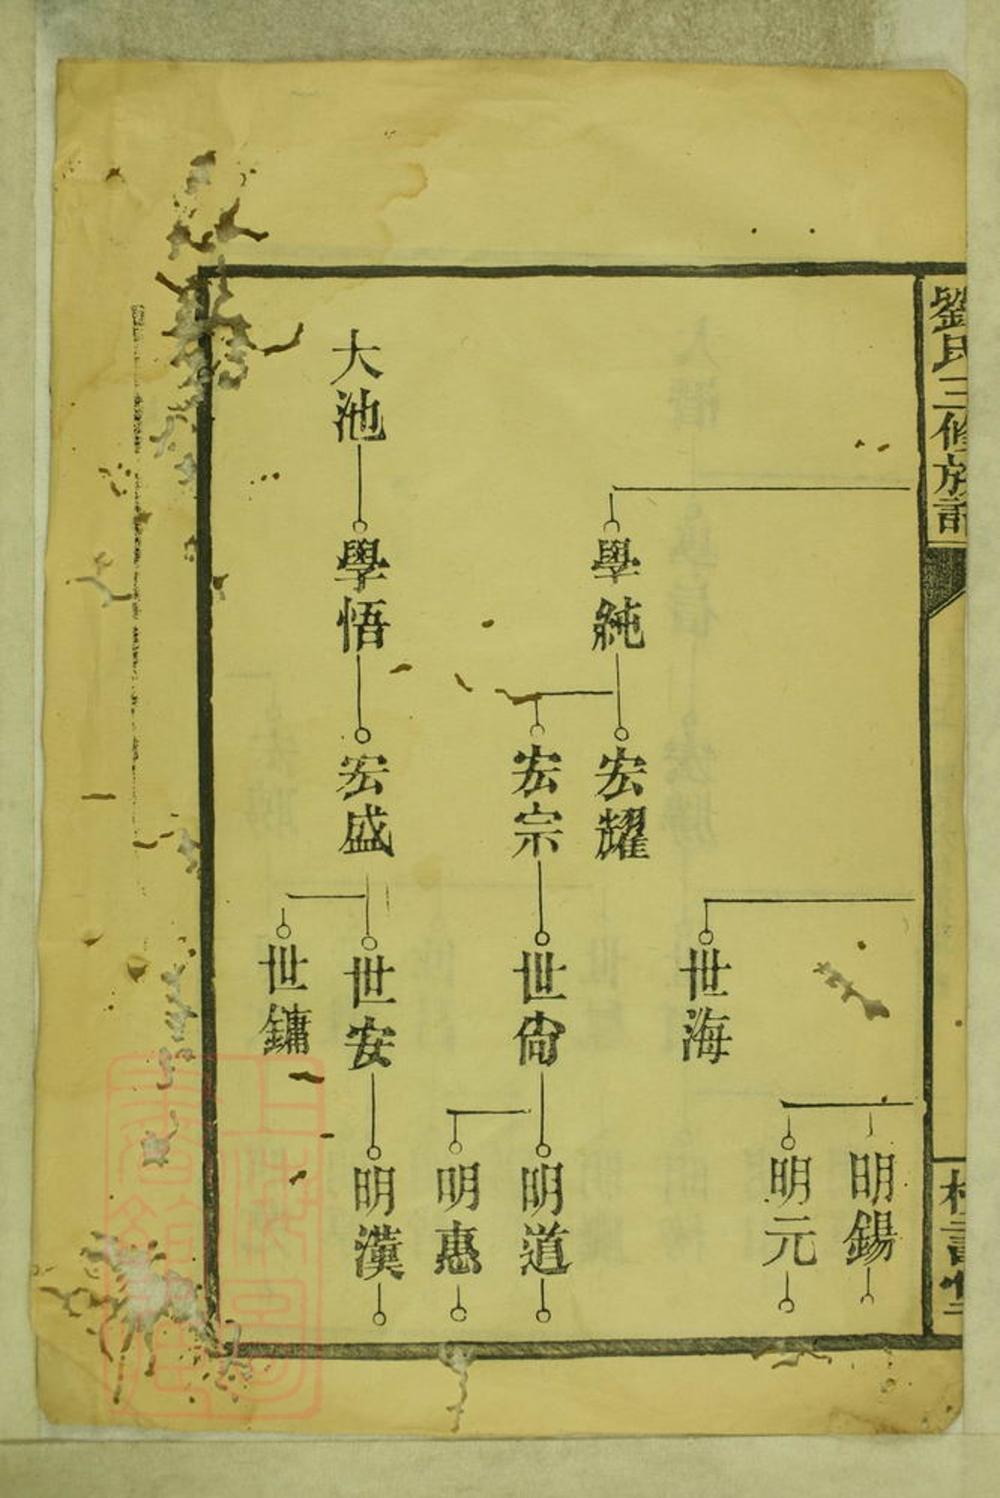 劉氏三修族譜
學純
宏耀
宏宗
世海
世尙
明錫
明元
明道
明惠
大池
學悟
宏盛
世安
世鏞
明漢
上海圖書館藏